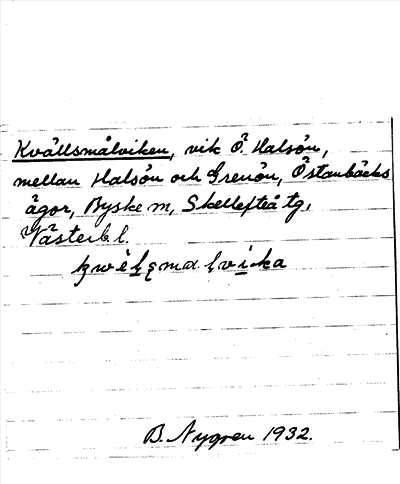 Kvällsmålviken, vik Ö. Halsön,
mellan Halsön och Grenön, Östanbäcks
ägor, Byske sn, Skellefteå tg,
Västerb. l.
B. Nygren 1932.